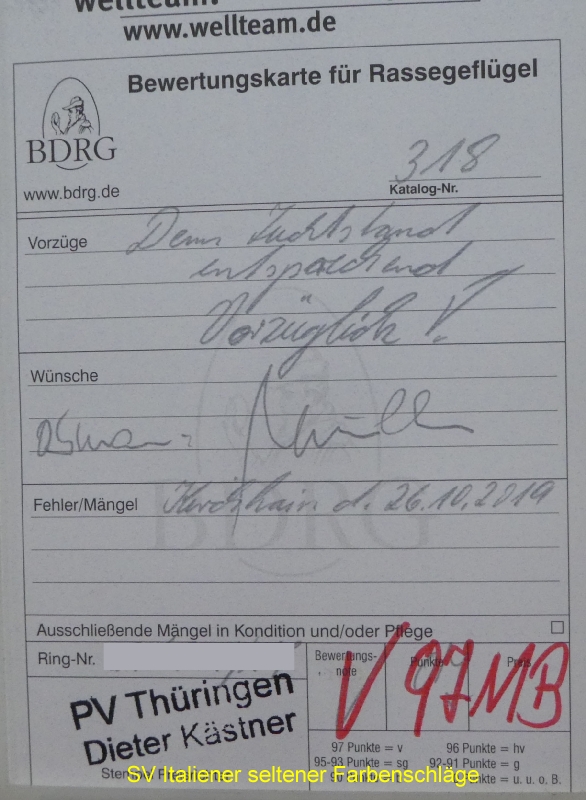 www.wellteam.de
Bewertungskarte für Rassegeflügel
BDRG
www.bdrg.de
318
Katalog-Nr.
Vorzüge Dem Zuchtstand
entsprechend
Vorzüglich !
Wünsche
Fehler/Mängel d. 26.10.2019
BDRG
Ausschließende Mängel in Kondition und/oder Pflege
Ring-Nr.
Bewertungs-note Punkte Preis
V 97 MB
PV Thüringen
Dieter Kästner
97 Punkte = v 96 Punkte = hv
95-93 Punkte = sg 92-91 Punkte = g
Punkte = u. u. o. B.
SV Italiener seltener Farbenschläge